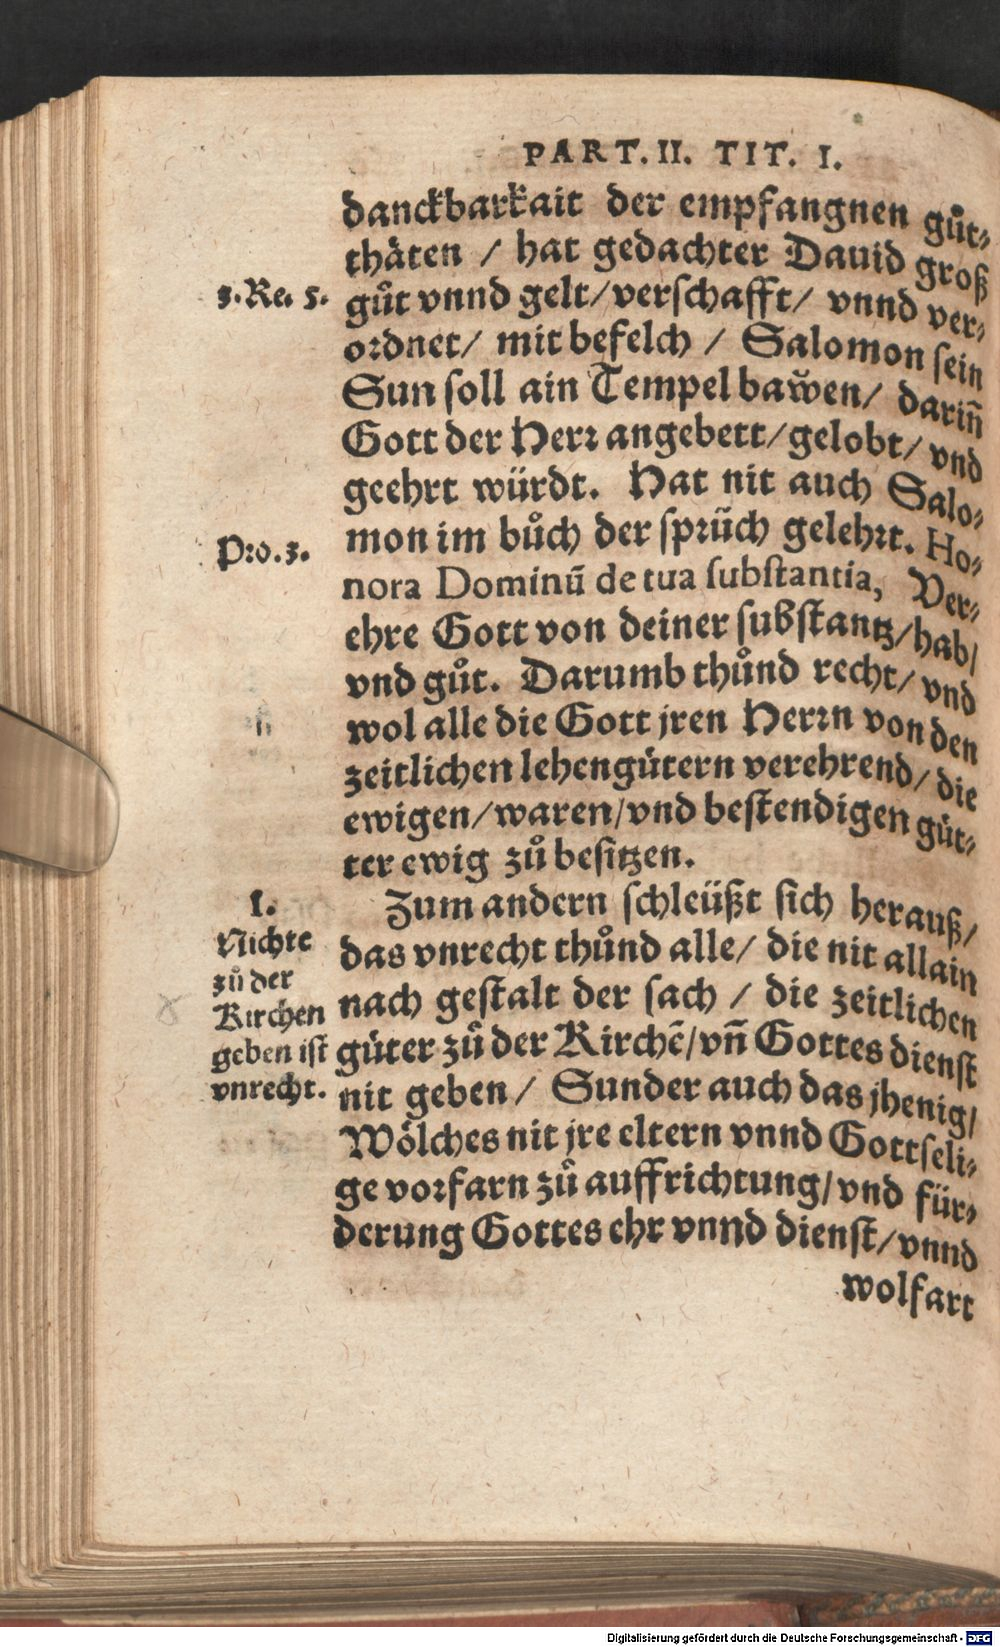 PART. II. TIT. I.
danckbarkait der empfangnen gůt⸗
thäten / hat gedachter Dauid groß
3. Re. 5.
gůt vnnd gelt/ verschafft/ vnnd ver⸗
ordnet/ mit befelch / Salomon sein
Sun soll ain Tempel bawen/ darin̄
Gott der Herr angebett/ gelobt/ vnd
geehrt würdt. Hat nit auch Salo⸗
mon im bůch der sprüch gelehrt. Ho⸗
Pro. 3.
nora Dominū de tua substantia, Ver⸗
ehre Gott von deiner substantz/ hab/
vnd gůt. Darumb thůnd recht/ vnd
wol alle die Gott jren Herrn von den
zeitlichen lehengütern verehrend/ die
ewigen/ waren/ vnd bestendigen güt⸗
ter ewig zů besitzen.
Zum andern schleüßt sich herauß/
das vnrecht thůnd alle/ die nit allain
nach gestalt der sach / die zeitlichen
güter zů der Kirchē/ vn̄ Gottes dienst
nit geben / Sunder auch das jhenig/
Wölches nit jre eltern vnnd Gottseli⸗
ge vorfarn zů auffrichtung/ vnd für⸗
derung Gottes ehr vnnd dienst/ vnnd
wolfart
1.
Nichte
zů der
Kirchen
geben ist
vnrecht.
Digitalisierung gefördert durch die Deutsche Forschungsgemeinschaft - DFG